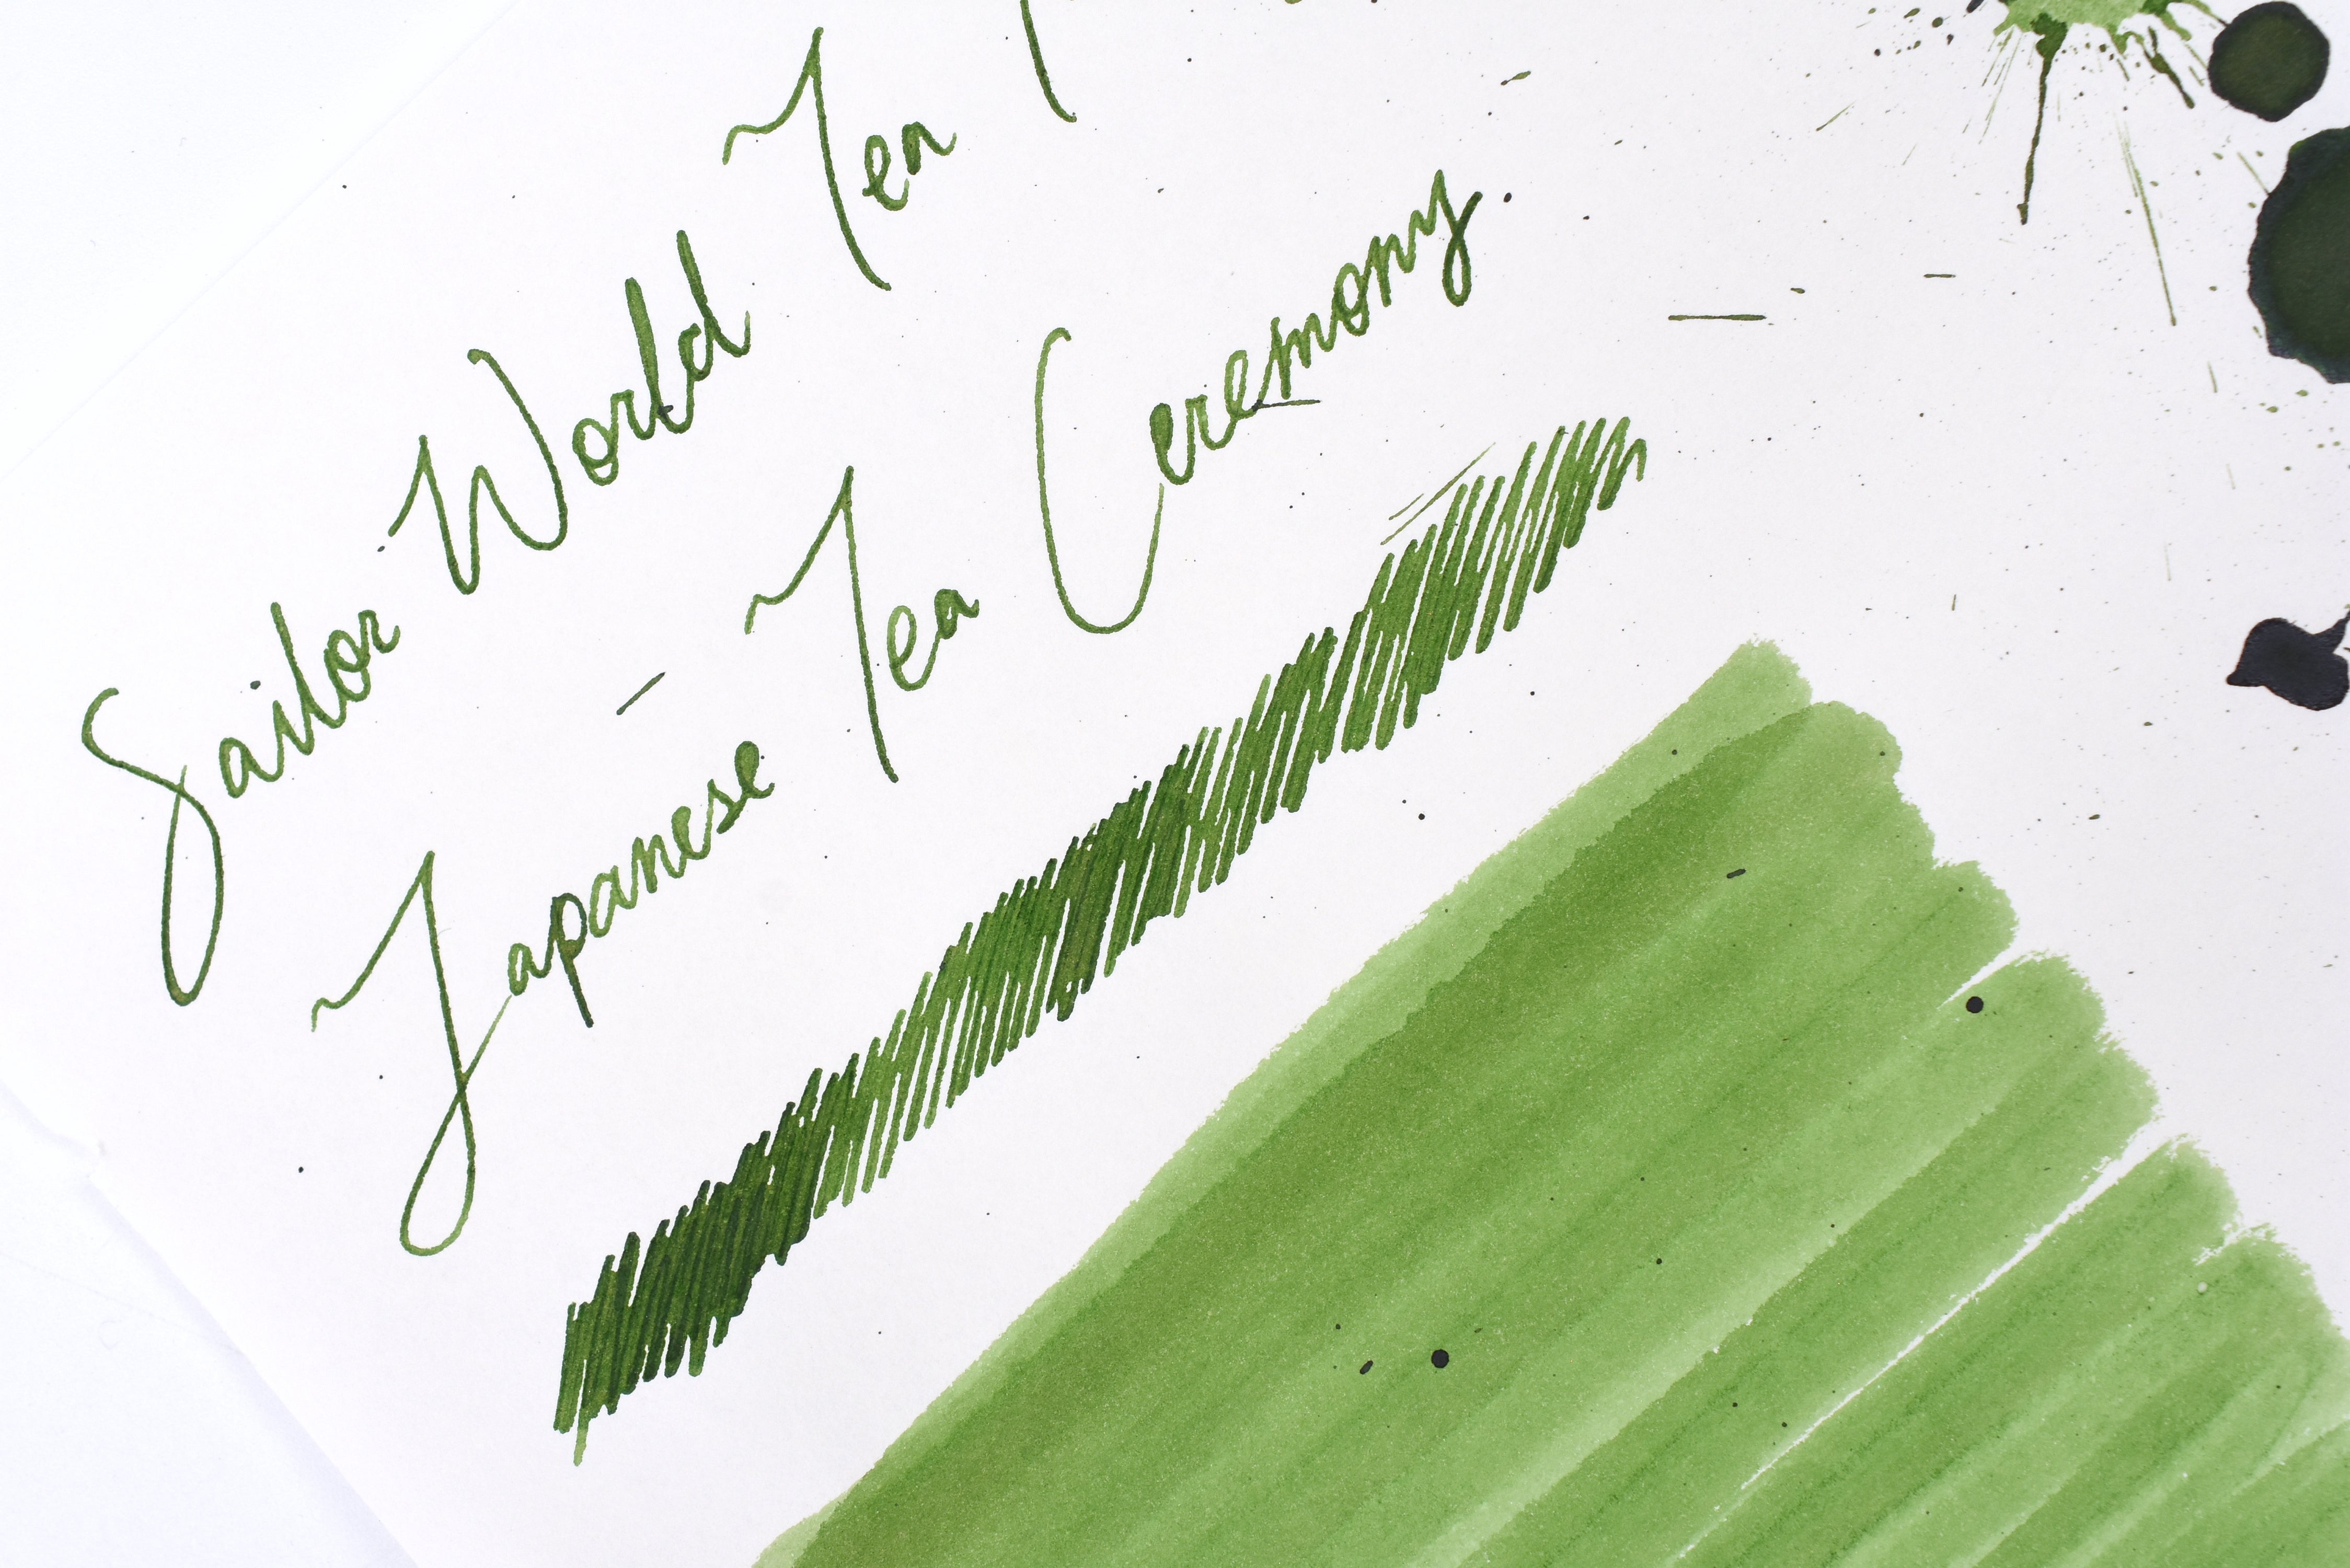 Sailor World Tea
Japanese Tea Ceremony